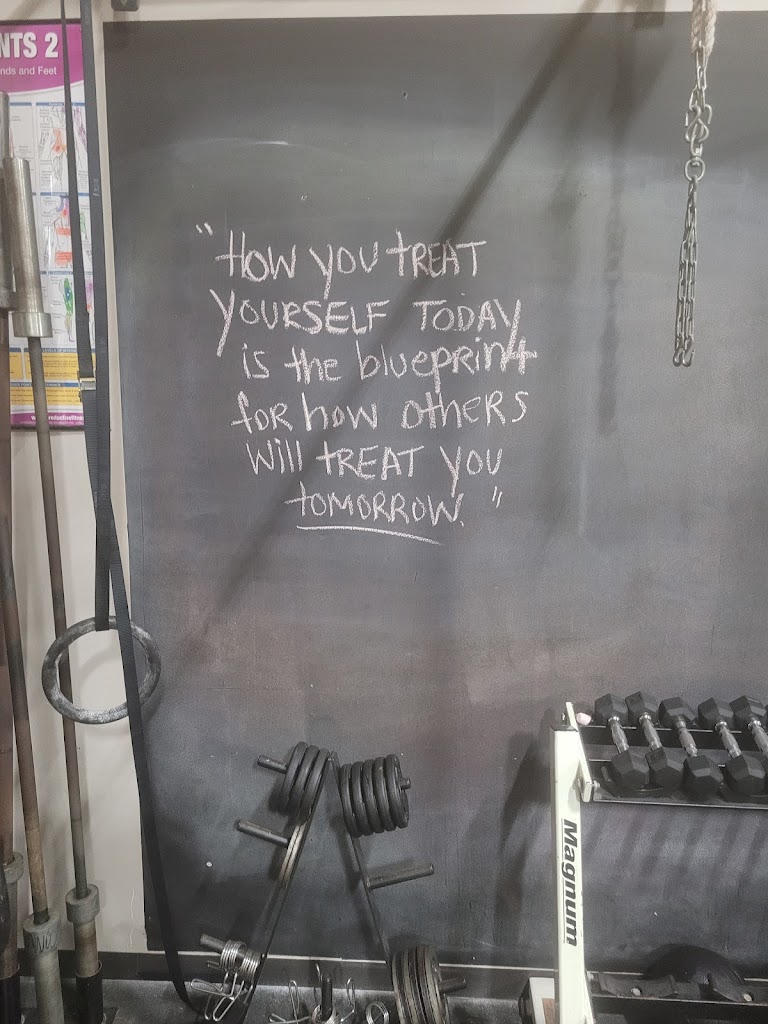 NTS 2
nds and Feet
"How you treat
yourself today
is the blueprint
for how others
will treat you
tomorrow."
Magnum